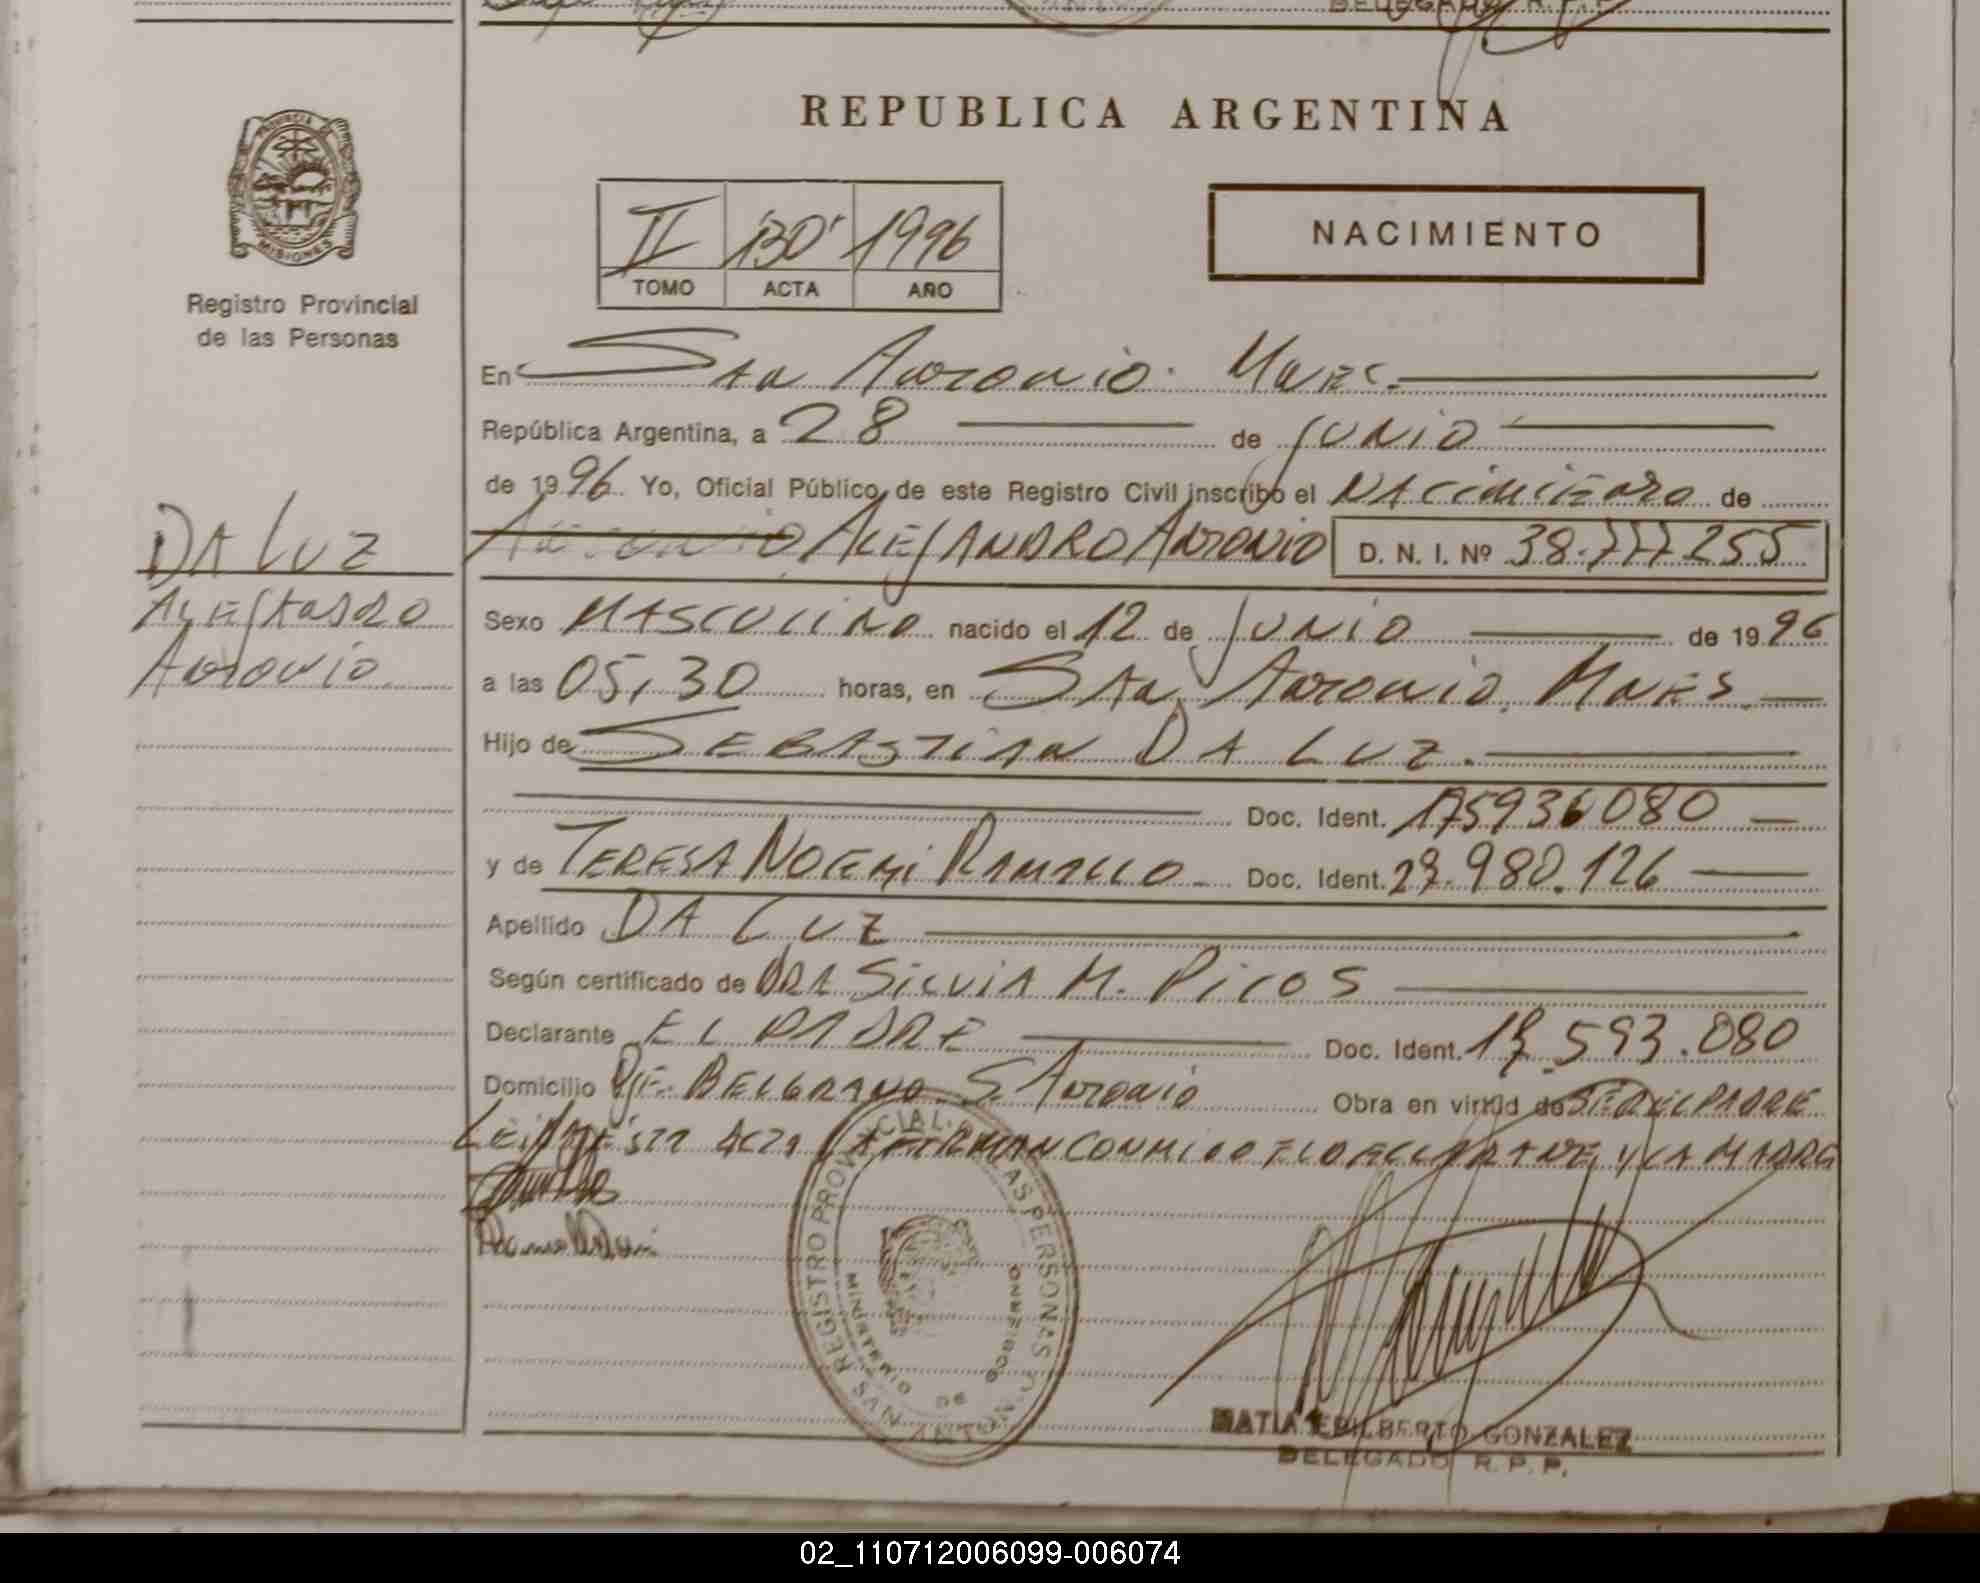 DELEGADO R. P. P.
REPUBLICA ARGENTINA
PROVINCIA DE
MISIONES
Registro Provincial
de las Personas
II 130 1996
TOMO ACTA AÑO
NACIMIENTO
En San Antonio. Mnes.
República Argentina, a 28 de Junio
de 1996. Yo, Oficial Público de este Registro Civil inscribo el Nacimiento de
DA LUZ
ALEJANDRO
Antonio
ALEJANDRO ANTONIO D. N. I. Nº 38.777.255
Sexo MASCULINO nacido el 12 de JUNIO de 1996
a las 05,30 horas, en San Antonio. Mnes
Hijo de SEBASTIAN DA LUZ.
Doc. Ident. 175936080
y de TERESA NOEMI RAMALLO Doc. Ident. 23.980.126
Apellido DA LUZ
Según certificado de DRA SILVIA M. PICOS
Declarante EL PADRE Doc. Ident. 17.593.080
Domicilio Pje. BELGRANO S. Antonio Obra en virtud de SER EL PADRE
LEIDA ESTA ACTA LA FIRMAN CONMIGO EL DECLARANTE Y LA MADRE
REGISTRO PROVINCIAL DE LAS PERSONAS
MINISTERIO DE GOBIERNO
MATIA EDILBERTO GONZALEZ
DELEGADO R. P. P.
02_110712006099-006074